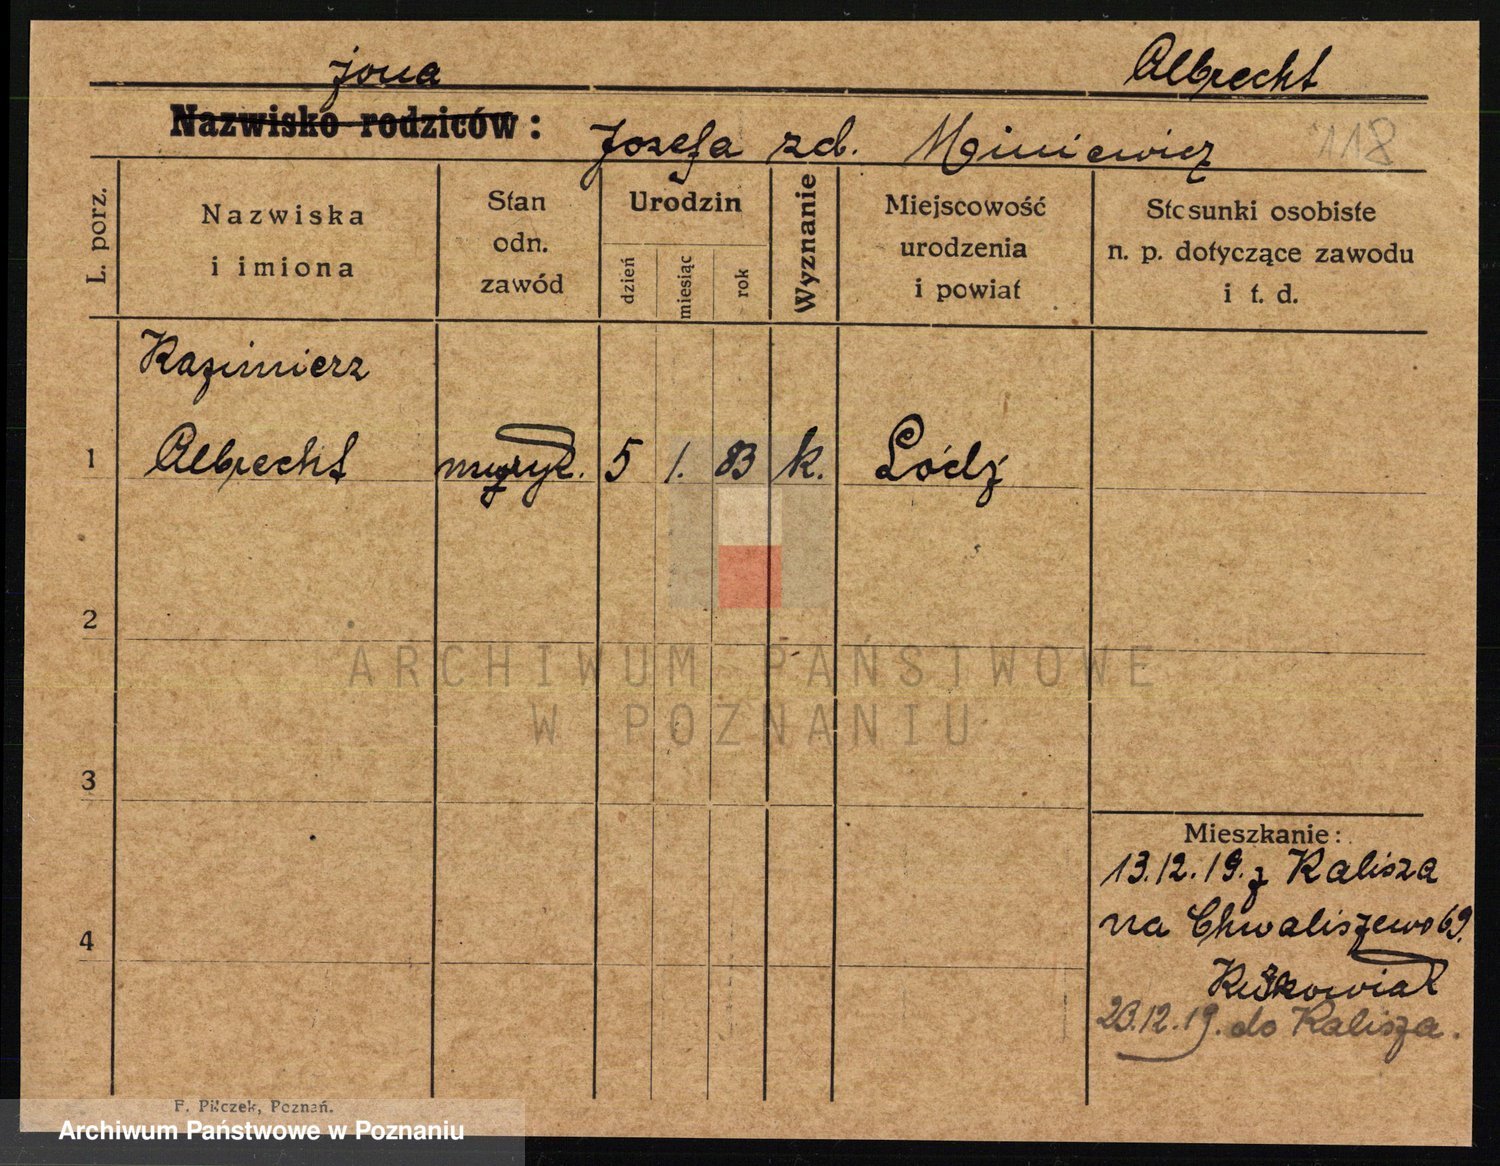 żona Albrecht
Nazwisko rodziców: Józefa zd. Miniewicz 118
L. porz.
Nazwiska
i imiona
Stan
odn.
zawód
Urodzin
dzień
miesiąc
rok
Wyznanie
Miejscowość
urodzenia
i powiat
Stosunki osobiste
n. p. dotyczące zawodu
i t. d.
Kazimierz
1 Albrecht muzyk. 5 1. 83 k. Łódź
2
3
4
Mieszkanie:
13.12.19. z Kalisza
na Chwaliszewo 69.
23.12.19. do Kalisza.
F. Pilczek, Poznań.
ARCHIWUM PAŃSTWOWE
W POZNANIU
Archiwum Państwowe w Poznaniu